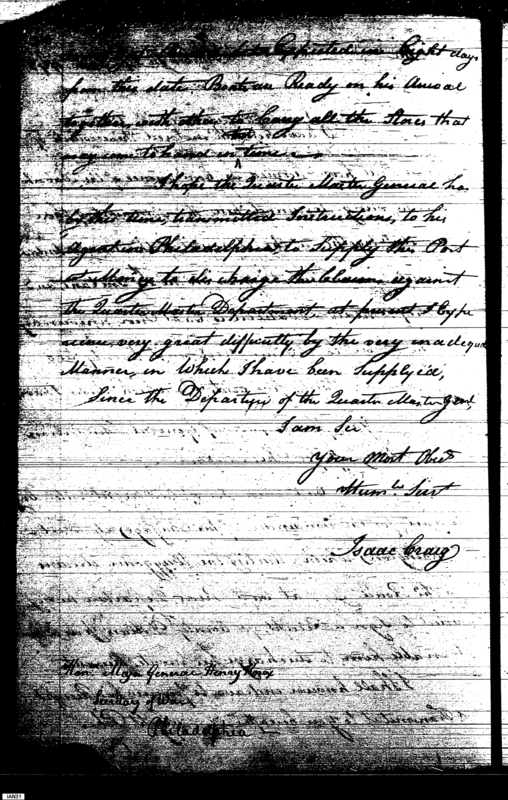 Expected in Eight days
from this date Boats are Ready on his Arrival
together with other to Carry all the Stores that
may come to hand in time
I hope the Quarter Master General has
by this time transmitted Instructions, to his
Agent in Philadelphia, to Supply this Post
Money to discharge the Claims against
the Quarter Master Department at present I Expe
rience very great difficulty by the very inadequate
Manner, in Which I have been Supplyed,
Since the Departure of the Quarter Master Genl,
I am Sir
Your Most Obedt
Humble Servt
Isaac Craig
Hon. Major General Henry Knox
Secretary of War
Philadelphia
IAN31